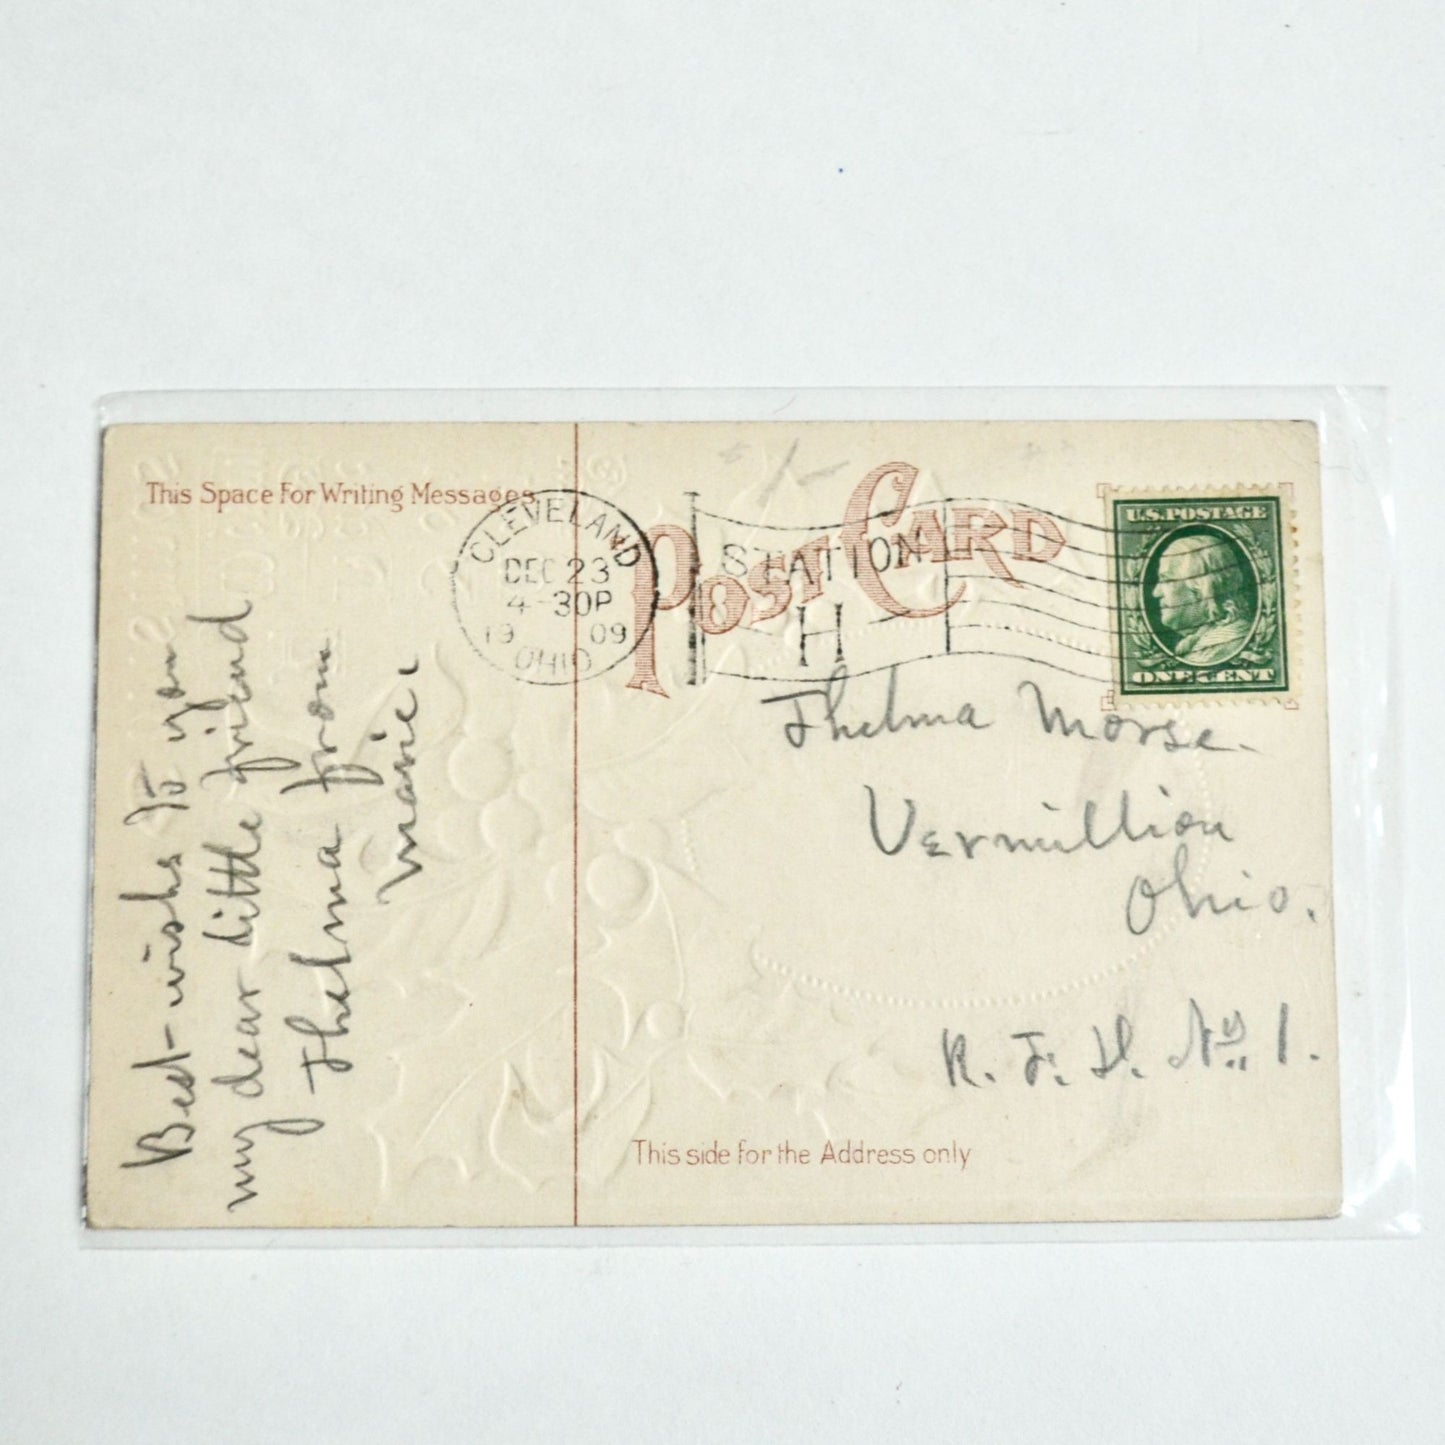 This Space For Writing Messages
Best-wishs to you
my dear little friend
Thelma from
Marie.
CLEVELAND
DEC 23
4-30P
1909
OHIO
STATION
H
POST CARD
U.S. POSTAGE
ONE CENT
Thelma Morse.
Vermillion
Ohio.
R. F. D. No 1.
This side for the Address only